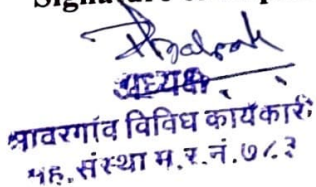 Signature
अध्यक्ष
सावरगांव विविध कार्यकारी
सह. संस्था म. र. नं. ७८३